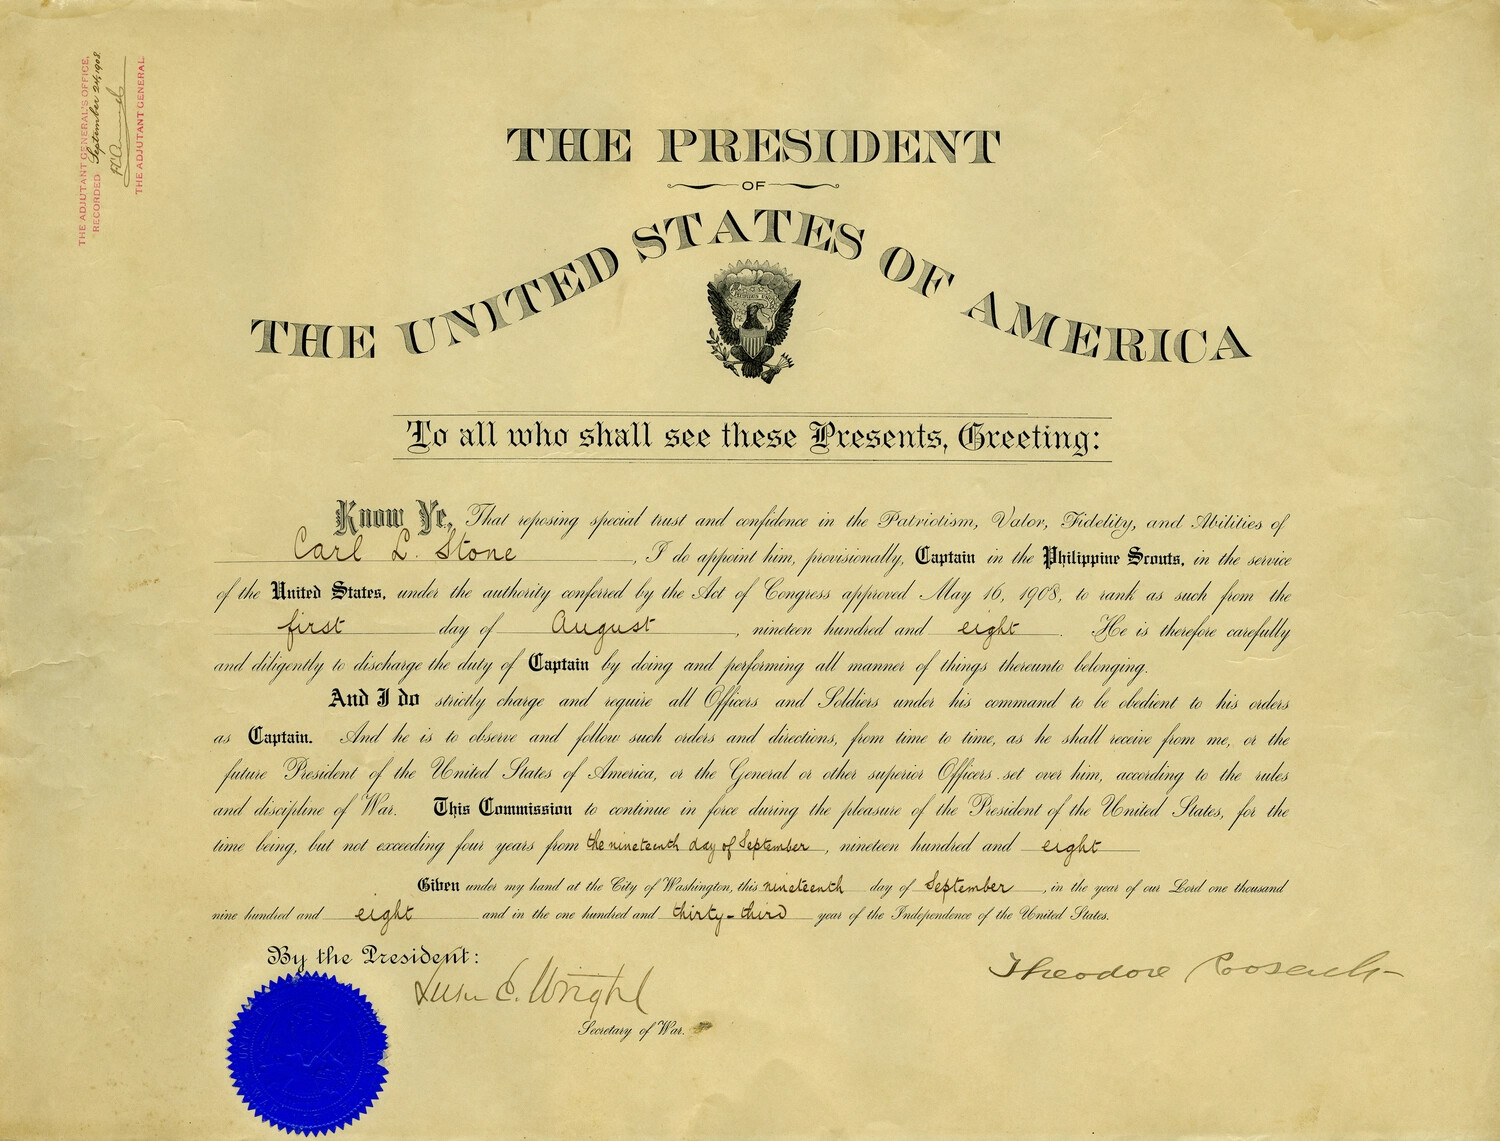 THE ADJUTANT GENERAL'S OFFICE,
RECORDED September 24, 1908
THE ADJUTANT GENERAL
THE PRESIDENT
OF
THE UNITED STATES OF AMERICA
To all who shall see these Presents, Greeting:
Know Ye, That reposing special trust and confidence in the Patriotism, Valor, Fidelity, and Abilities of
Carl L. Stone, I do appoint him, provisionally, Captain in the Philippine Scouts, in the service
of the United States, under the authority conferred by the Act of Congress approved May 16, 1908, to rank as such from the
first day of August, nineteen hundred and eight. He is therefore carefully
and diligently to discharge the duty of Captain by doing and performing all manner of things thereunto belonging.
And I do strictly charge and require all Officers and Soldiers under his command to be obedient to his orders
as Captain. And he is to observe and follow such orders and directions, from time to time, as he shall receive from me, or the
future President of the United States of America, or the General or other superior Officers set over him, according to the rules
and discipline of War. This Commission to continue in force during the pleasure of the President of the United States, for the
time being, but not exceeding four years from the nineteenth day of September, nineteen hundred and eight
Given under my hand at the City of Washington, this nineteenth day of September, in the year of our Lord one thousand
nine hundred and eight and in the one hundred and thirty-third year of the Independence of the United States.
By the President:
Luke E. Wright
Theodore Roosevelt
Secretary of War.